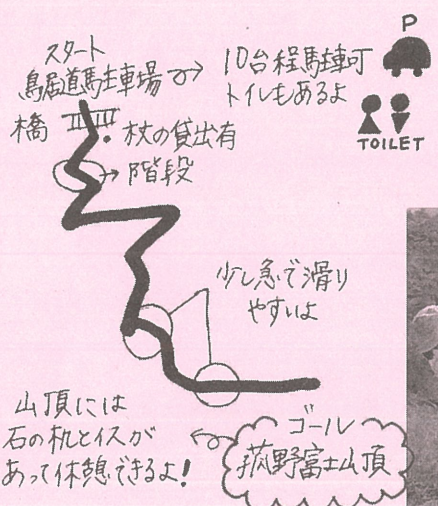 スタート
鳥居道駐車場
10台程駐車可
トイレもあるよ
P
TOILET
橋
杖の貸出有
階段
少し急で滑り
やすいよ
山頂には
石の机とイスが
あって休憩できるよ!
ゴール
菰野富士山頂